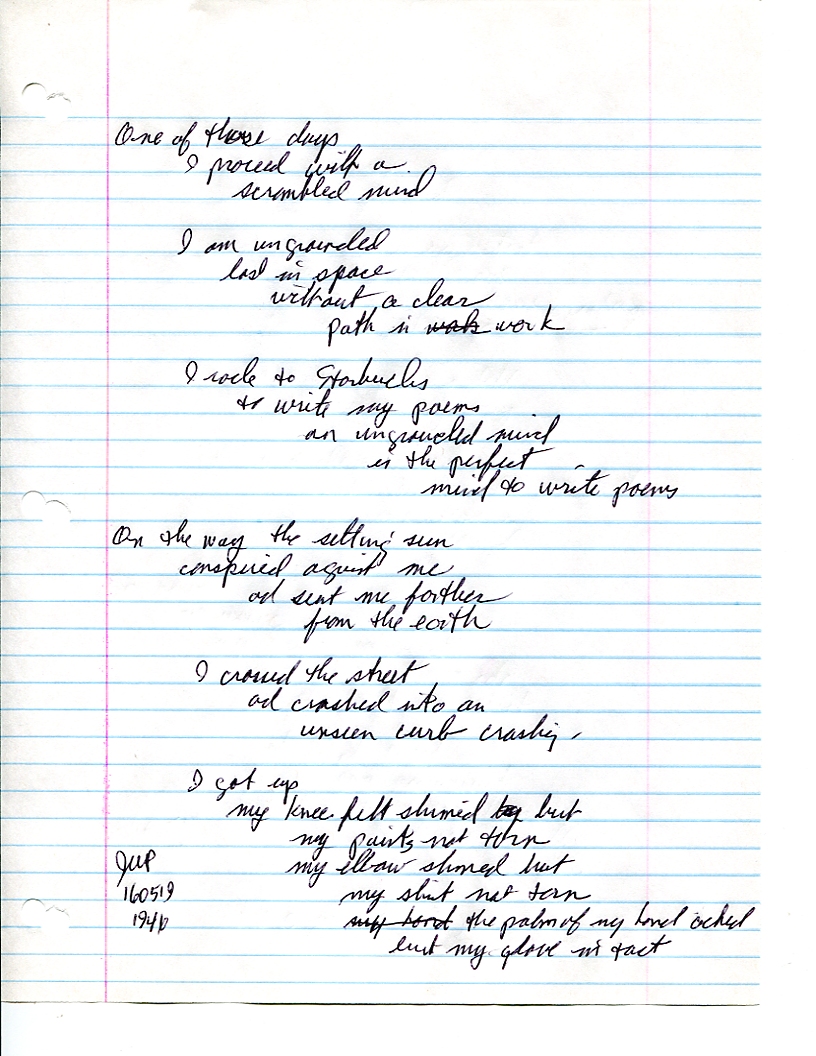 One of those days
I proceed with a
scrambled mind
I am ungrounded
lost in space
without a clear
path in work
I rode to Starbucks
to write my poems
an ungrounded mind
is the perfect
mind to write poems
On the way the setting sun
conspired against me
ad sent me further
from the earth
I crossed the street
ad crashed into an
unseen curb crashing
I got up
my knee felt but
my pants not torn
my elbow but
my shirt not torn
the palm of my hand ached
but my glove in tact
JWP
160519